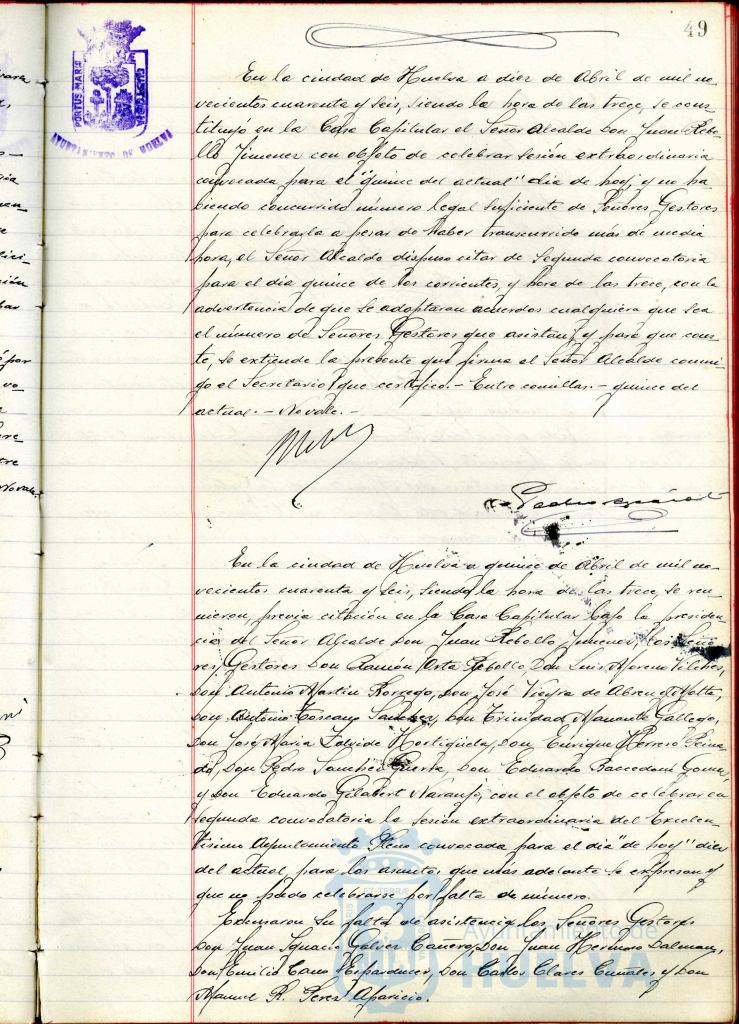 49
PORTUS MARIS
AYUNTAMIENTO DE HUELVA
En la ciudad de Huelva a diez de Abril de mil no-
vecientos cuarenta y seis, siendo la hora de las trece, se cons-
tituyó en la Casa Capitular el Señor Alcalde Don Juan Rebo-
llo Jimenez con objeto de celebrar sesión extraordinaria
convocada para el "quince del actual" dia de hoy, y no ha
biendo concurrido número legal suficiente de Señores Gestores
para celebrarla a pesar de haber transcurrido más de media
hora, el Señor Alcalde dispuso citar de Segunda convocatoria
para el dia quince de los corrientes, y hora de las trece, con la
advertencia de que se adoptaran acuerdos cualquiera que sea
el número de Señores Gestores que asistan, y para que cons-
te, se extiende la presente que firma el Señor Alcalde conmi-
go el Secretario, que certifico.- Entre comillas.- quince del
actual.- No vale.-
En la ciudad de Huelva a quince de Abril de mil no-
vecientos cuarenta y seis, siendo la hora de las trece, se reu-
nieron, previa citación en la Casa Capitular bajo la presiden-
cia del Señor Alcalde Don Juan Rebollo Jimenez, los Seño-
res Gestores Don Ramón Arta Rebollo, Don Luis Moreno Vilches,
Don Antonio Martin Borrego, Don José Vieyra de Abreu y Motta,
Don Antonio Toscano Sanchez, Don Trinidad Manante Gallego,
Don José Maria Hortigüela, Don Enrique Herrero Peina
do, Don Pedro Sanchez Guerra, Don Eduardo Gomez
y Don Eduardo Gilabert Naranjo, con el objeto de celebrar en
segunda convocatoria la sesión extraordinaria del Excelen-
tisimo Ayuntamiento Pleno convocada para el dia "de hoy" diez
del actual, para los asuntos que más adelante se expresan y
que no pudo celebrarse por falta de número.
Excusaron su falta de asistencia los Señores Gestores
Don Juan Ignacio Galvez Cañero, Don Juan Hermoso Dalmau,
Don Emilio Cano Don Carlos Clares y Don
Manuel R. Perez Aparicio.
Ayuntamiento de
HUELVA